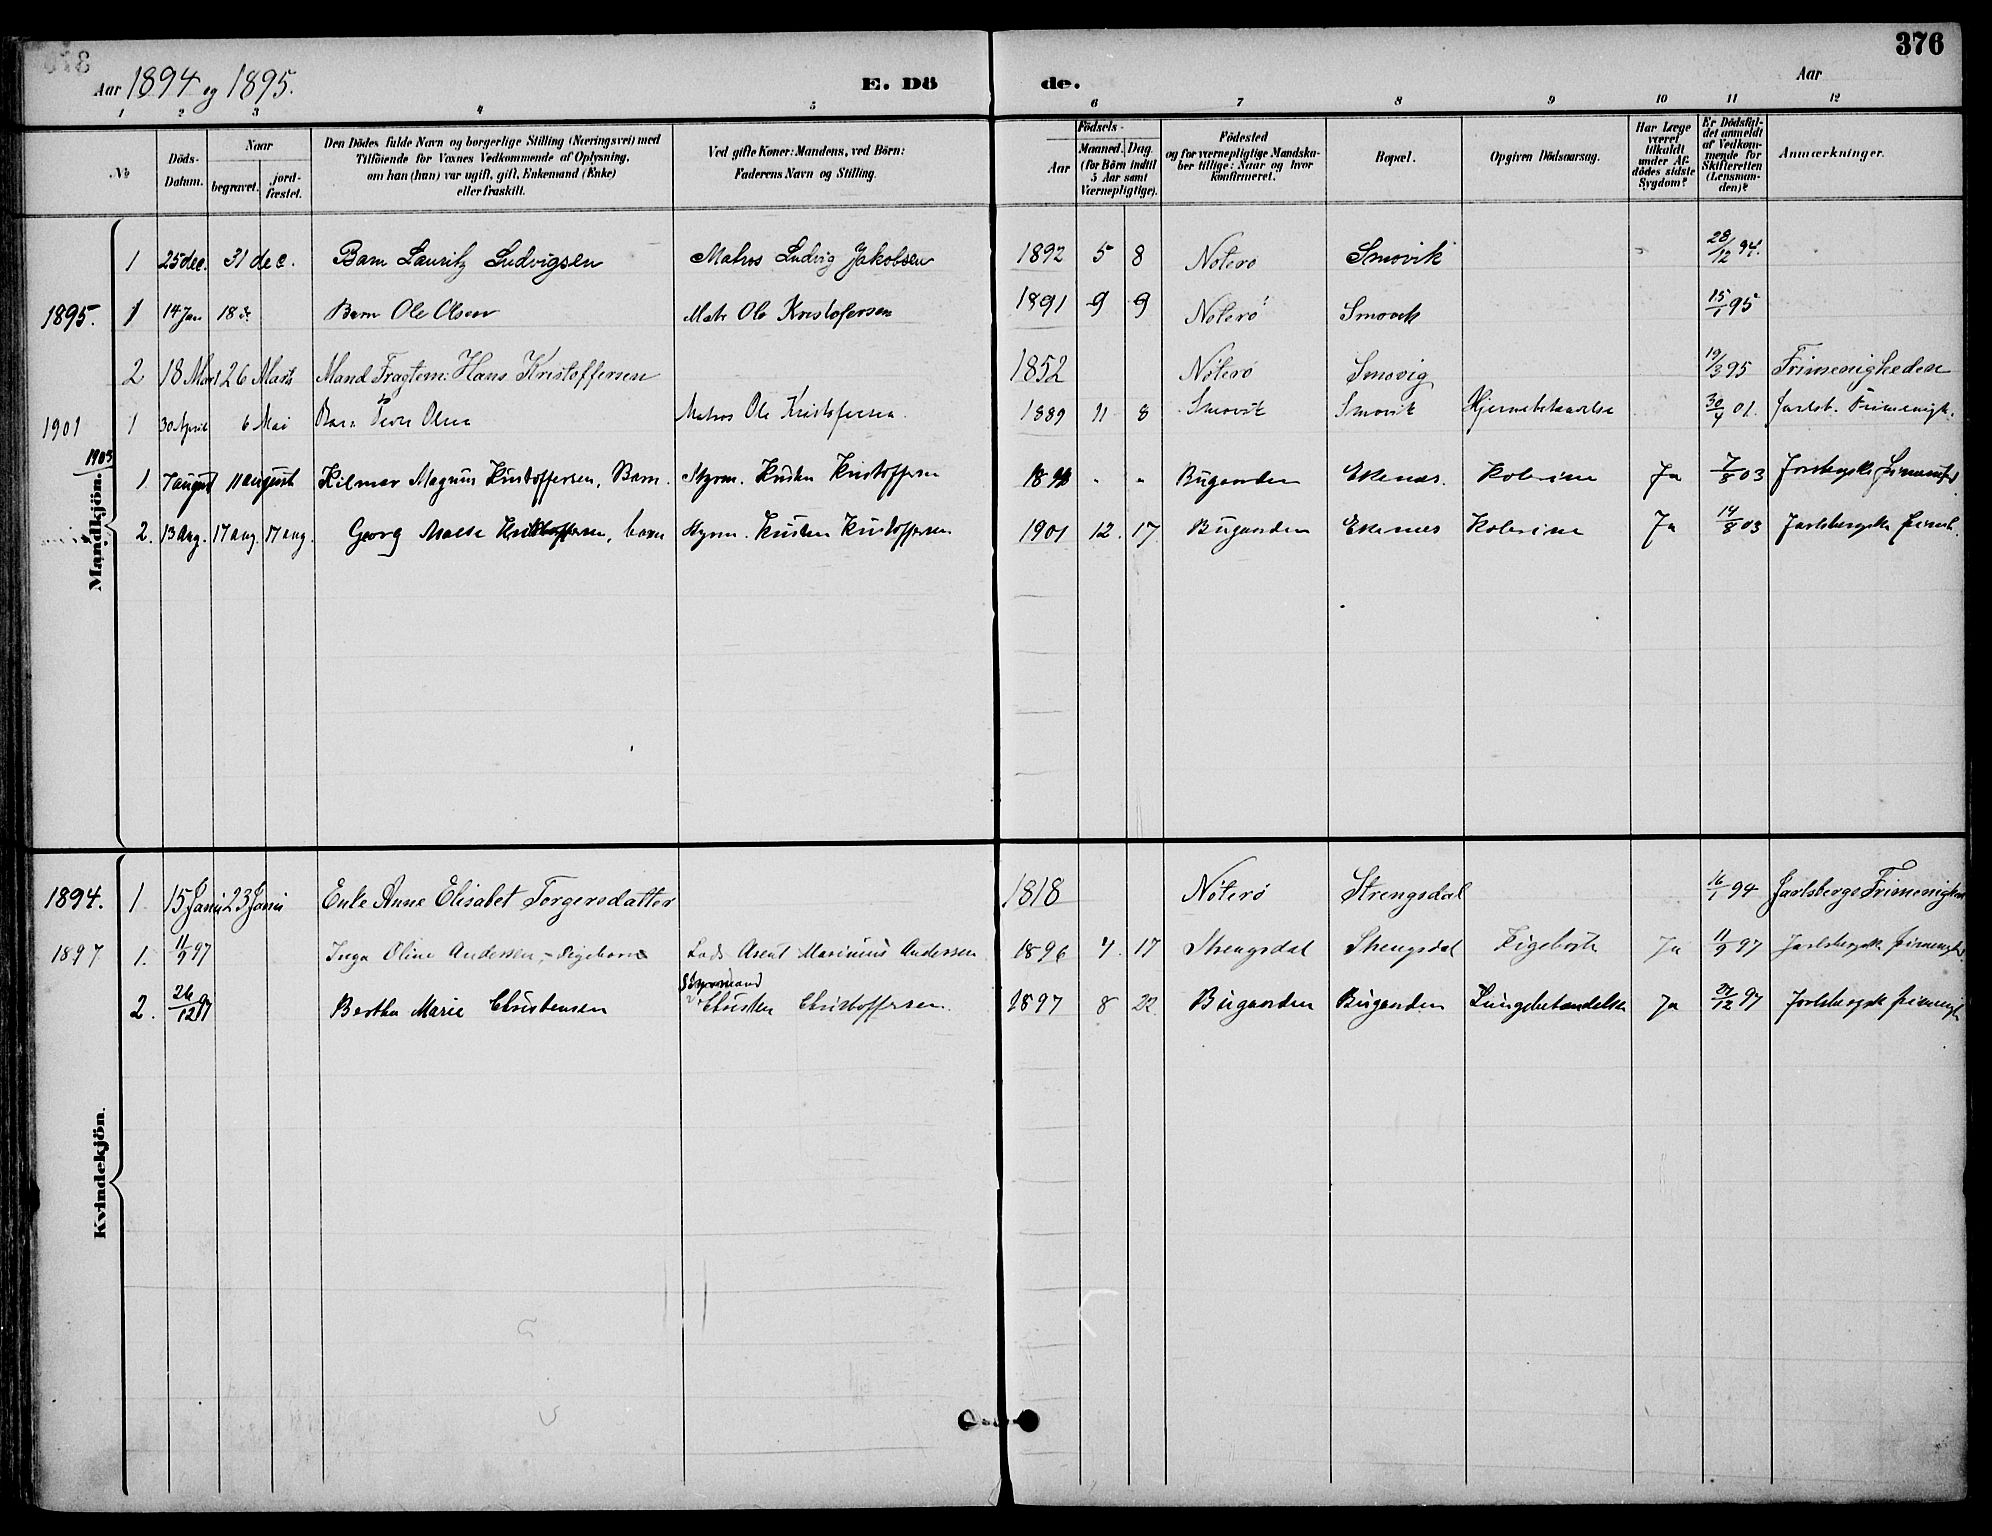 376
Aar 1894 og 1895.
E. Dö de.
Aar
1 2 3 4 5 6 7 8 9 10 11 12
No
Döds-Datum.
Naar begravet. jord-fæstet.
Den Dödes fulde Navn og borgerlige Stilling (Næringsvei) med Tilföiende for Voxnes Vedkommende af Oplysning, om han (hun) var ugift, gift, Enkemand (Enke) eller fraskilt.
Ved gifte Koner: Mandens, ved Börn: Faderens Navn og Stilling.
Födsels-
Aar
Maaned. Dag. (for Börn indtil 5 Aar samt Værnepligtige).
Födested og for værnepligtige Mandskaber tillige: Naar og hvor konfirmeret.
Bopæl.
Opgiven Dödsaarsag.
Har Læge været tilkaldt under Afdödes sidste Sygdom?
Er Dödsfaldet anmeldt af Vedkommende for Skifteretten (Lensmanden)?
Anmærkninger.
Mandkjön.
1 25 dec. 31 dec. Barn Lauritz Ludvigsen Matros Ludvig Jakobsen 1892 5 8 Nøterø Smovik 28/12 94.
1895. 1 14 Jan 18 d. Barn Ole Olsen Matr Ole Kristofersen 1891 9 9 Nøterø Smovik 15/1 95
2 18 Mart 26 Marts Mand Fragtem: Hans Kristoffersen 1852 Nøterø Smovig 19/3 95 Frimenigheden
1901 1 30 April 6 Mai Barn Olsen Matros Ole Kristofersen. 1889 11 8 Smovik Smovik Hjernebetændelse 30/4 01. Jarlsb. Frimenigh.
1903 1. 7 august 11 august Hilmar Magnus Kristoffersen, Barn. Styrm. Kristen Kristoffersen " " Bugaarden Ekenes. Kolerine Ja 7/8 03
2. 13 aug. 17 aug. 17 aug. Georg Kristoffersen, barn Styrm. Kristen Kristoffersen 1901 12. 17 Bugaarden Ekenes Kolerine Ja 14/8 03 Jarlsbergske frimh.
Kvindekjön.
1894. 1. 15 Janu 23 Janu Enke Anne Elisabet Torgersdatter 1818 Nøterø Strengsdal 16/1 94 Jarlsbergs Frimenighed
1897 1. 11/9 97 Inga Oline Andersen, Pigebarn Lods Arent Marinius Andersen 1896 7. 17 Strengsdal Strengsdal Ja 11/9 97 Jarlsbergsk frimenighd.
2. 26/12 97 Bertha Marie Christensen Styrmand Christen Christoffersen. 1897 8 22. Bugaarden Bugaarden Lungebetændelse Ja 27/12 97 Jarlsbergsk frimengh